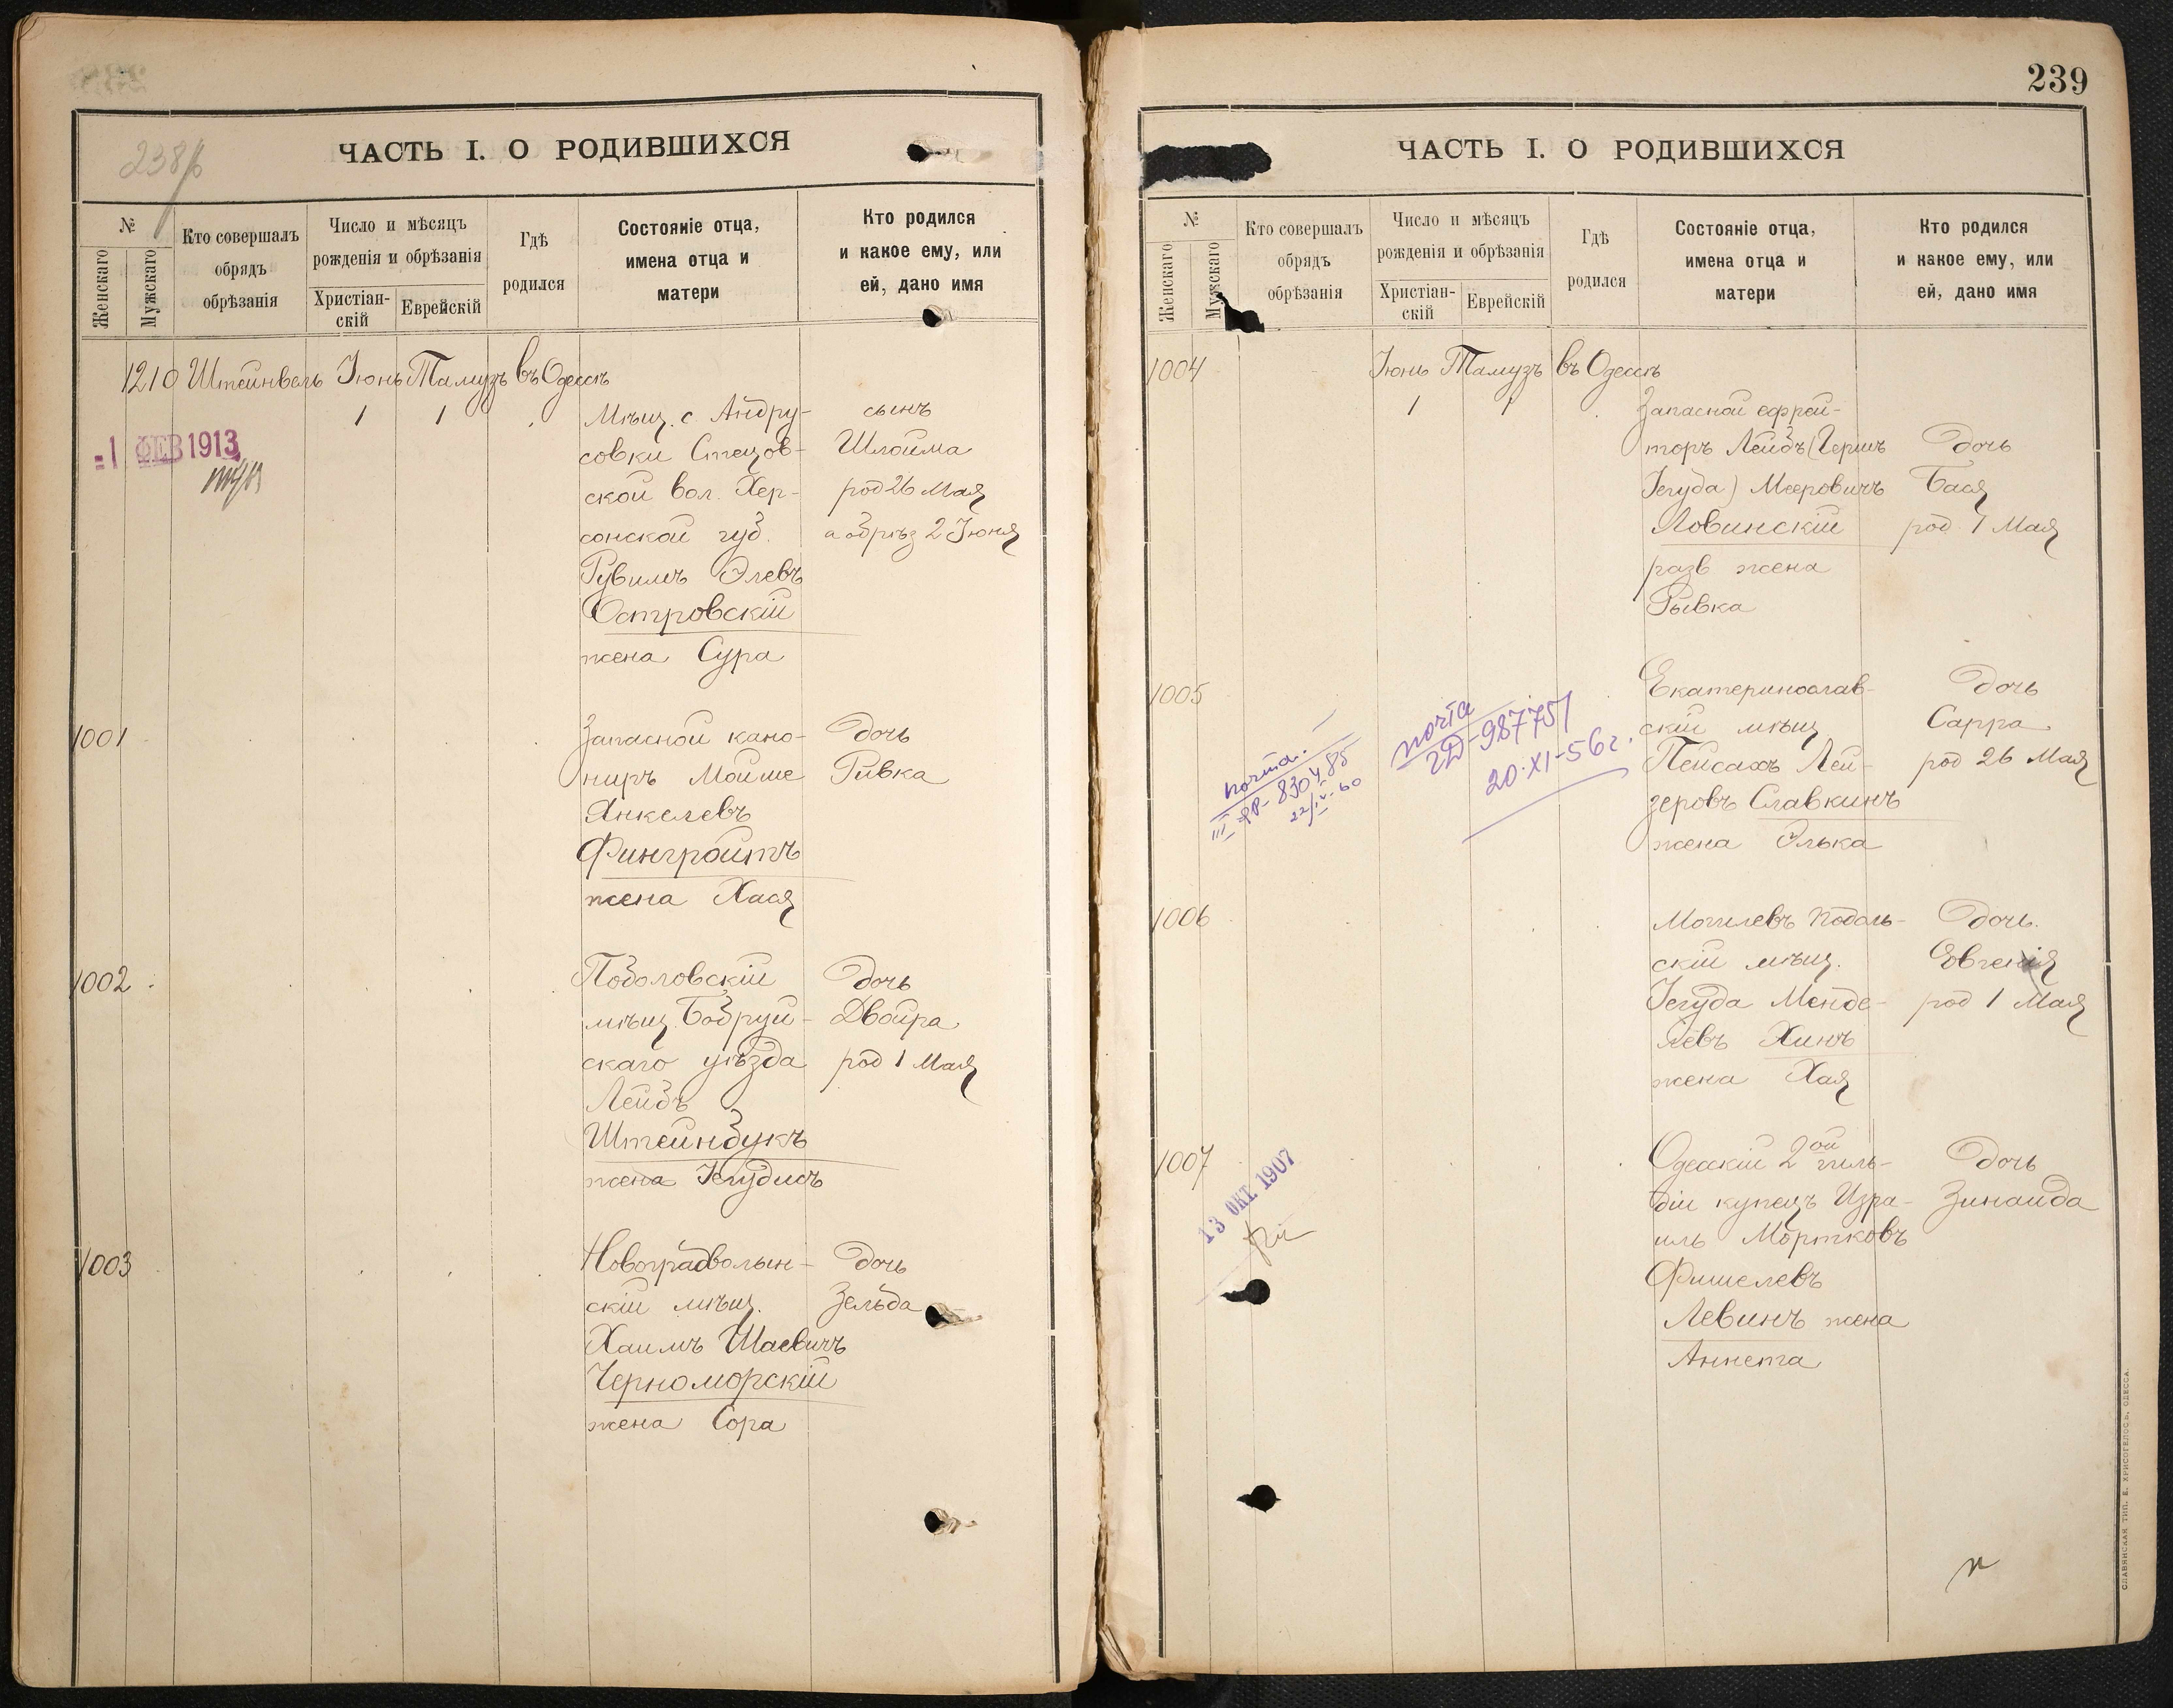 238/b
ЧАСТЬ I. О РОДИВШИХСЯ
№
Женскаго
Мужскаго
Кто совершалъ
обрядъ
обрѣзанія
Число и мѣсяцъ
рожденія и обрѣзанія
Христіан-
скій
Еврейскій
Гдѣ
родился
Состояніе отца,
имена отца и
матери
Кто родился
и какое ему, или
ей, дано имя
1210 Штейнвель Іюнь Тамузъ въ Одессѣ
1 1 Мѣщ. с. Андру- сынъ
совки Стецов- Шлойма
ской вол. Хер- род 26 Мая
сонской губ. а обрѣз 2 Іюня
Рувимъ Элевъ
Островскій
жена Сура
=1 ФЕВ 1913
1001 Запасной кано- дочь
ниръ Мойше Ривка
Янкелевъ
Фингройтъ
жена Хася
1002 Поболовскій дочь
мѣщ. Бобруй- Двойра
скаго уѣзда род 1 Мая
Лейбъ
Штейнбукъ
жена Іегудисъ
1003 Новоградволын- дочь
скій мѣщ. Зельда
Хаимъ Шаевичъ
Черноморскій
жена Сора
239
ЧАСТЬ I. О РОДИВШИХСЯ
№
Женскаго
Мужскаго
Кто совершалъ
обрядъ
обрѣзанія
Число и мѣсяцъ
рожденія и обрѣзанія
Христіан-
скій
Еврейскій
Гдѣ
родился
Состояніе отца,
имена отца и
матери
Кто родился
и какое ему, или
ей, дано имя
1004 Іюнь Тамузъ въ Одессѣ
1 1 Запасной ефрей-
торъ Лейбъ (Гершъ дочь
Іегуда) Мееровичъ Бася
Ловинскій род 1 Мая
разв жена
Рывка
1005 Екатеринослав- дочь
скій мѣщ Сарра
Пейсахъ Лей- род 26 Мая
зеровъ Славкинъ
жена Элька
почта
2D-987751
20·XI-56г.
почта.
III РР-830485
22/IV-60
1006 Могилевъ Подоль- дочь.
скій мѣщ. Евгенія
Іегуда Менде- род 1 Мая
левъ Хинъ
жена Хая
1007 Одесскій 2ой гиль- дочь
діи купецъ Изра- Зинаида
иль Мортковъ
Фишелевъ
Левинъ жена
Аннета
13 ОКТ. 1907
СЛАВЯНСКАЯ ТИП. Е. ХРИСОГЕЛОСЪ, ОДЕССА.